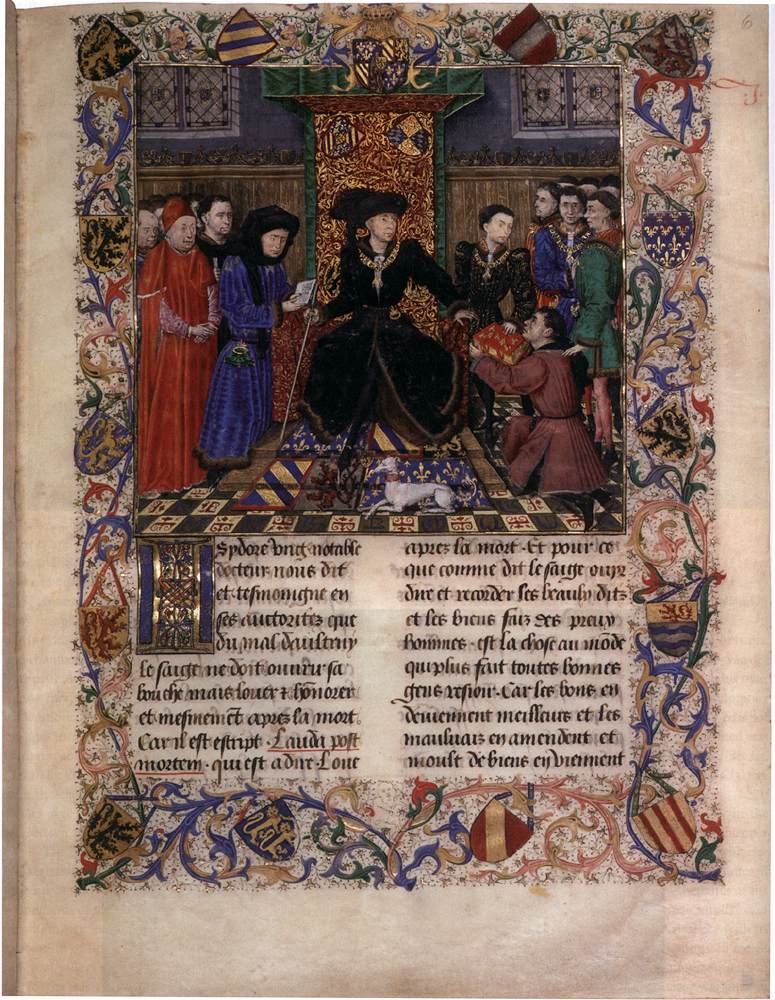 6
Isydore vng notable
docteur nous dit
et tesmoingne en
ses auctoritez que
du mal daultruy
le saige ne doit ouurir sa
bouche mais louer & hōnorer
et mesmemēt apres la mort
Car il est escript. Lauda post
mortem. qui est a dire Loue
apres la mort. Et pour ce
que comme dit le saige ouyr
dire et recorder les beaulx ditz
et les biens faiz des preux
hommes. est la chose au mōde
qui plus fait toutes bonnes
gens resioir. Car les bons en
deuiennent meilleurs et les
mauluaiz en amendent et
moult de biens en viennent